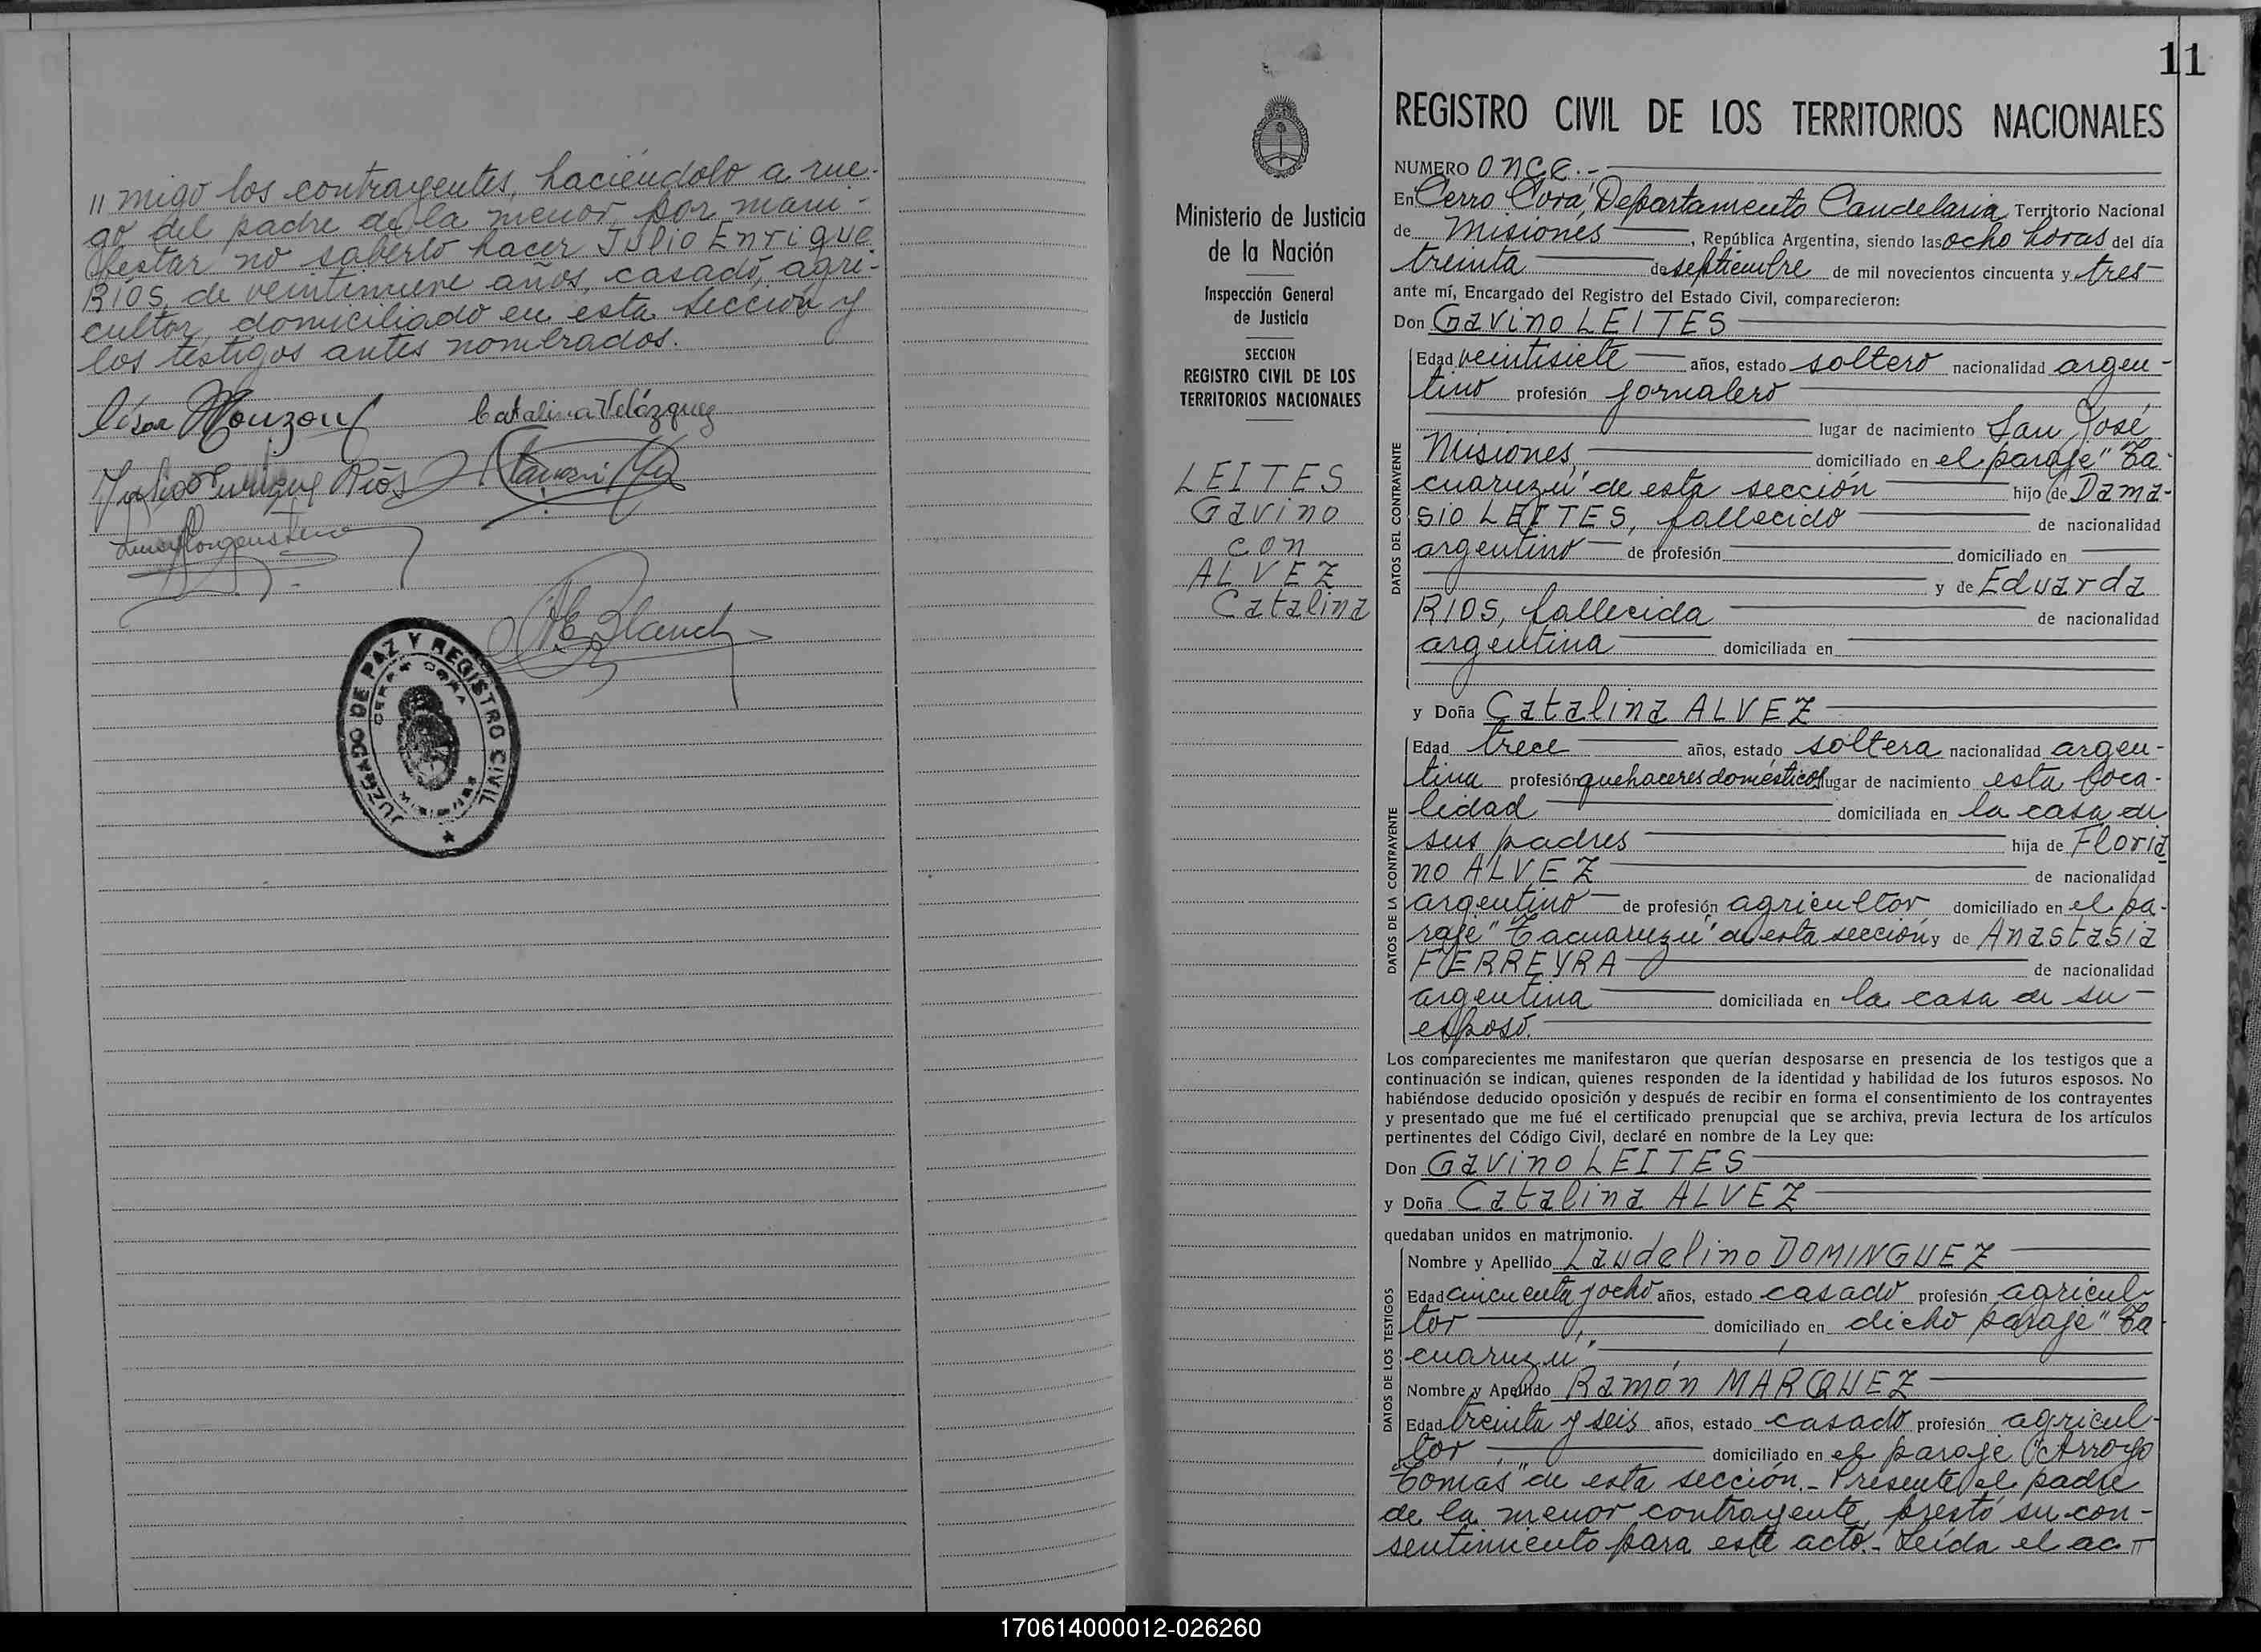 " migo los contrayentes, haciéndolo a rue-
go del padre de la menor, por mani-
festar no saberlo hacer Julio Enrique
RIOS, de veintinueve años, casado, agri-
cultor, domiciliado en esta sección y
los testigos antes nombrados.
César Monzon Catalina Velázquez
Julio Enrique Ríos
JUZGADO DE PAZ Y REGISTRO CIVIL
CERRO CORA
MISIONES
11
REGISTRO CIVIL DE LOS TERRITORIOS NACIONALES
Ministerio de Justicia
de la Nación
Inspección General
de Justicia
SECCION
REGISTRO CIVIL DE LOS
TERRITORIOS NACIONALES
LEITES
Gavino
con
ALVEZ
Catalina
NUMERO once.-
En Cerro Corá, Departamento Candelaria Territorio Nacional
de Misiones, República Argentina, siendo las ocho horas del día
treinta de septiembre de mil novecientos cincuenta y tres
ante mí, Encargado del Registro del Estado Civil, comparecieron:
Don Gavino LEITES
DATOS DEL CONTRAYENTE
Edad veintisiete años, estado soltero nacionalidad argen-
tino profesión jornalero
lugar de nacimiento San José
Misiones, domiciliado en el paraje "Ta-
cuaruzú" de esta sección hijo de Dama-
sio LEITES, fallecido de nacionalidad
argentino de profesión domiciliado en
y de Eduarda
RIOS, fallecida de nacionalidad
argentina domiciliada en
y Doña Catalina ALVEZ
DATOS DE LA CONTRAYENTE
Edad trece años, estado soltera nacionalidad argen-
tina profesión quehaceres domésticos lugar de nacimiento esta loca-
lidad domiciliada en la casa de
sus padres hija de Floria
no ALVEZ de nacionalidad
argentino de profesión agricultor domiciliado en el pa-
raje "Tacuaruzú" de esta sección y de Anastasia
FERREYRA de nacionalidad
argentina domiciliada en la casa de su
esposo.
Los comparecientes me manifestaron que querían desposarse en presencia de los testigos que a
continuación se indican, quienes responden de la identidad y habilidad de los futuros esposos. No
habiéndose deducido oposición y después de recibir en forma el consentimiento de los contrayentes
y presentado que me fué el certificado prenupcial que se archiva, previa lectura de los artículos
pertinentes del Código Civil, declaré en nombre de la Ley que:
Don Gavino LEITES
y Doña Catalina ALVEZ
quedaban unidos en matrimonio.
DATOS DE LOS TESTIGOS
Nombre y Apellido Laudelino DOMINGUEZ
Edad cincuenta y ocho años, estado casado profesión agricul-
tor domiciliado en dicho paraje "Ta
cuaruzú".
Nombre y Apellido Ramón MARQUEZ
Edad treinta y seis años, estado casado profesión agricul-
tor domiciliado en el paraje "Arroyo
Tomás" de esta sección.- Presente el padre
de la menor contrayente, prestó su con-
sentimiento para este acto.- Leída el ac "
170614000012-026260